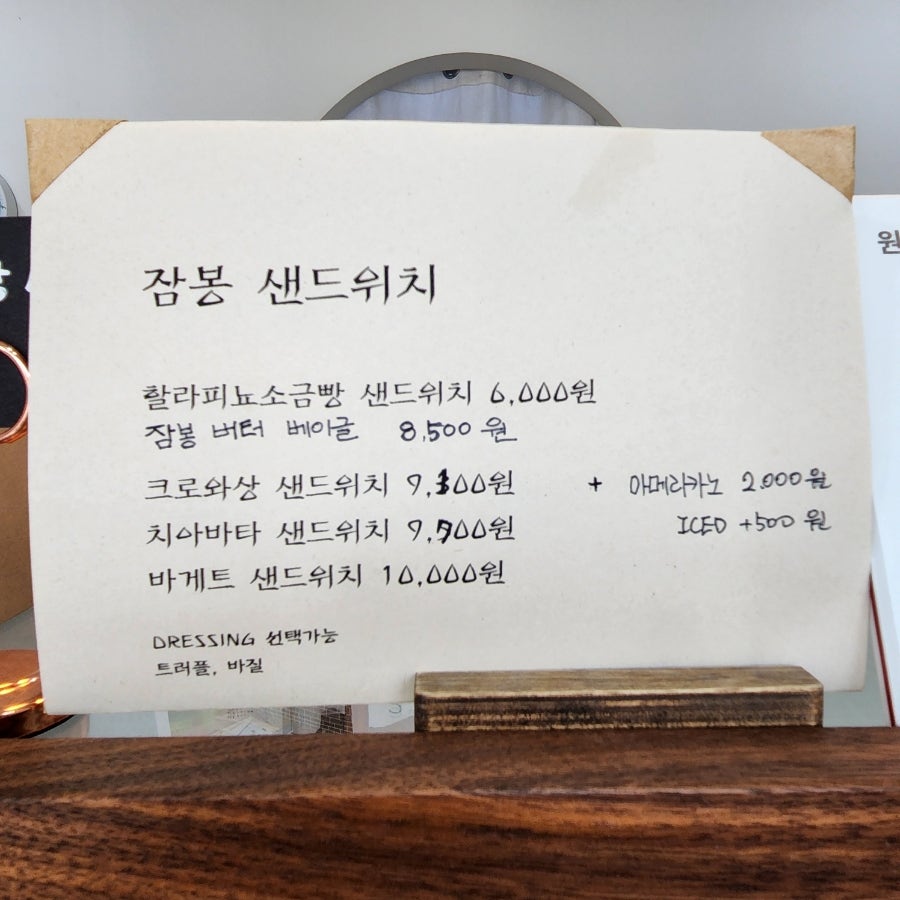 잠봉 샌드위치
할라피뇨소금빵 샌드위치 6,000원
잠봉 버터 베이글 8,500 원
크로와상 샌드위치 + 아메리카노 2.000원
치아바타 샌드위치 ICED +500 원
바게트 샌드위치 10,000원
DRESSING 선택가능
트러플, 바질
원